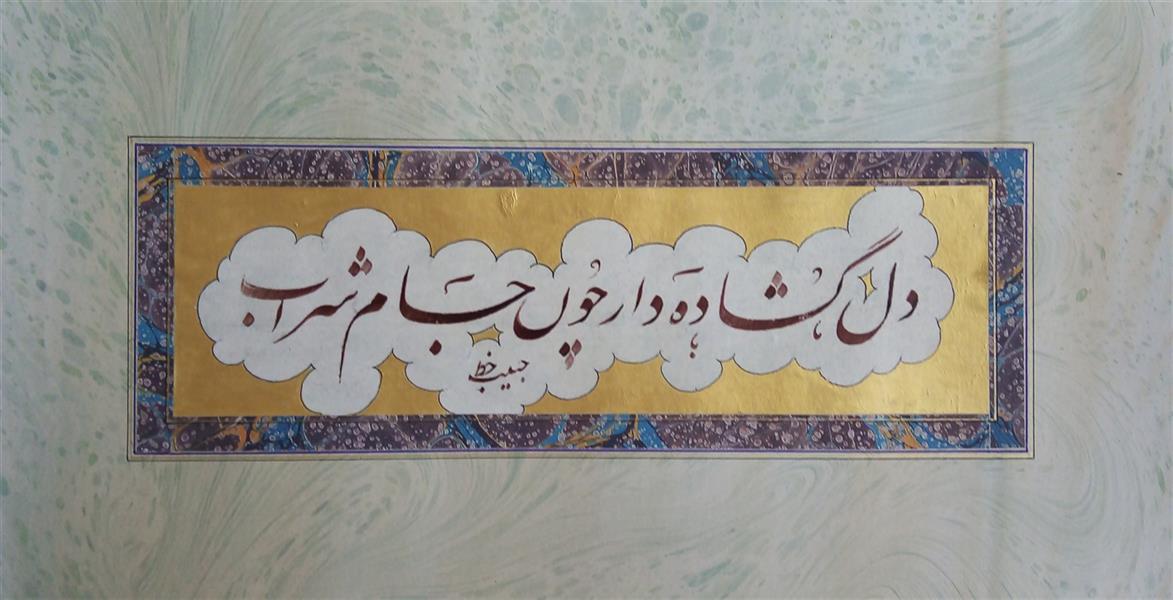 دل گشاده دار چون جام شراب
حبیب خط